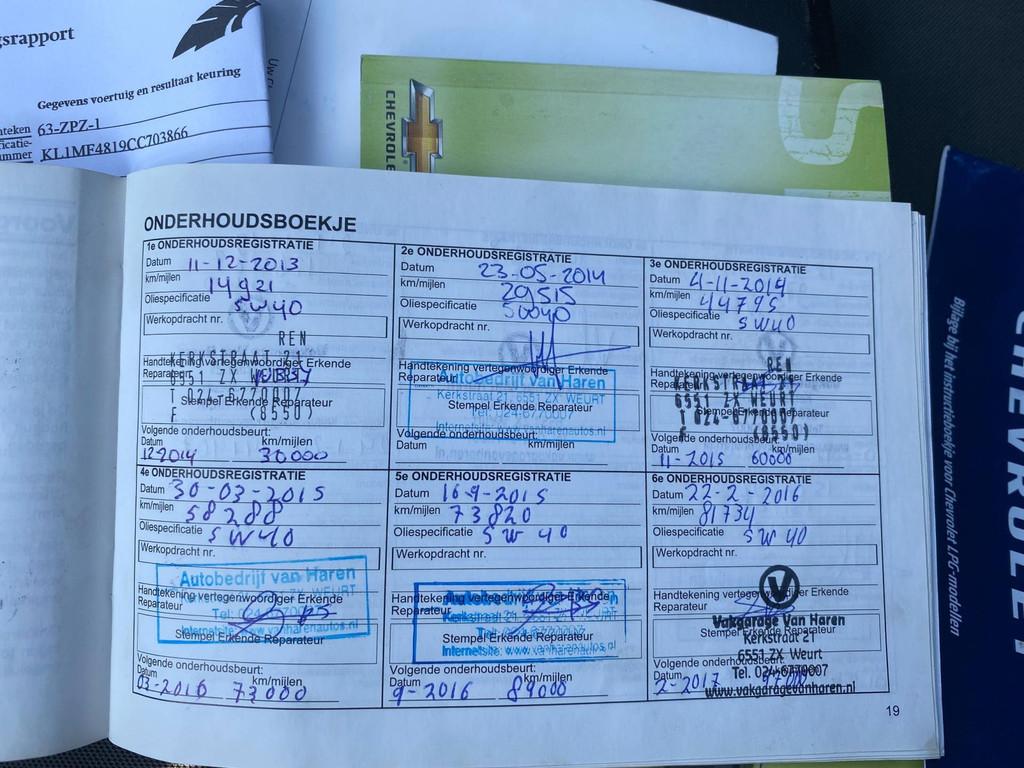 srapport
Gegevens voertuig en resultaat keuring
nteken 63-ZPZ-1
icatie-
ummer KL1MF4819CC703866
CHEVROLE
ONDERHOUDSBOEKJE
1e ONDERHOUDSREGISTRATIE
Datum 11-12-2013
km/mijlen 14921
Oliespecificatie 5W40
Werkopdracht nr.
REN
KERKSTRAAT 21
Handtekening vertegenwoordiger Erkende
Reparateur
6551 ZX WEURT
T 024-6770007
Stempel Erkende Reparateur
F (8550)
Volgende onderhoudsbeurt:
Datum km/mijlen
12 2014 30.000
2e ONDERHOUDSREGISTRATIE
Datum 23-05-2014
km/mijlen 29515
Oliespecificatie 5W40
Werkopdracht nr.
Handtekening vertegenwoordiger Erkende
Reparateur
Autobedrijf van Haren
Kerkstraat 21, 6551 ZX WEURT
Stempel Erkende Reparateur
Tel: 024-6770007
Internetsite: www.vanharenautos.nl
Volgende onderhoudsbeurt:
Datum km/mijlen
3e ONDERHOUDSREGISTRATIE
Datum 4-11-2014
km/mijlen 44795
Oliespecificatie 5W40
Werkopdracht nr.
REN
Handtekening vertegenwoordiger Erkende
Reparateur
KERKSTRAAT 21
6551 ZX WEURT
Stempel Erkende Reparateur
T 024-6770007
F (8550)
Volgende onderhoudsbeurt:
Datum km/mijlen
11-2015 60000
4e ONDERHOUDSREGISTRATIE
Datum 30-03-2015
km/mijlen 58288
Oliespecificatie 5W40
Werkopdracht nr.
Autobedrijf van Haren
Handtekening vertegenwoordiger Erkende
Reparateur
Stempel Erkende Reparateur
Internetsite: www.vanharenautos.nl
Volgende onderhoudsbeurt:
Datum km/mijlen
03-2016 73000
5e ONDERHOUDSREGISTRATIE
Datum 16-9-2015
km/mijlen 73820
Oliespecificatie 5W40
Werkopdracht nr.
Handtekening vertegenwoordiger Erkende
Reparateur
Kerkstraat 21, 6551 ZX WEURT
Stempel Erkende Reparateur
Internetsite: www.vanharenautos.nl
Volgende onderhoudsbeurt:
Datum km/mijlen
9-2016 89000
6e ONDERHOUDSREGISTRATIE
Datum 22-2-2016
km/mijlen 81734
Oliespecificatie 5W40
Werkopdracht nr.
V
Handtekening vertegenwoordiger Erkende
Reparateur
Vakgarage Van Haren
Stempel Erkende Reparateur
Kerkstraat 21
6551 ZX Weurt
Volgende onderhoudsbeurt:
Tel. 024-6770007
Datum km/mijlen
2-2017
www.vakgaragevanharen.nl
19
Bijlage bij het instructieboekje voor Chevrolet LPG-modellen
CHEVROLET